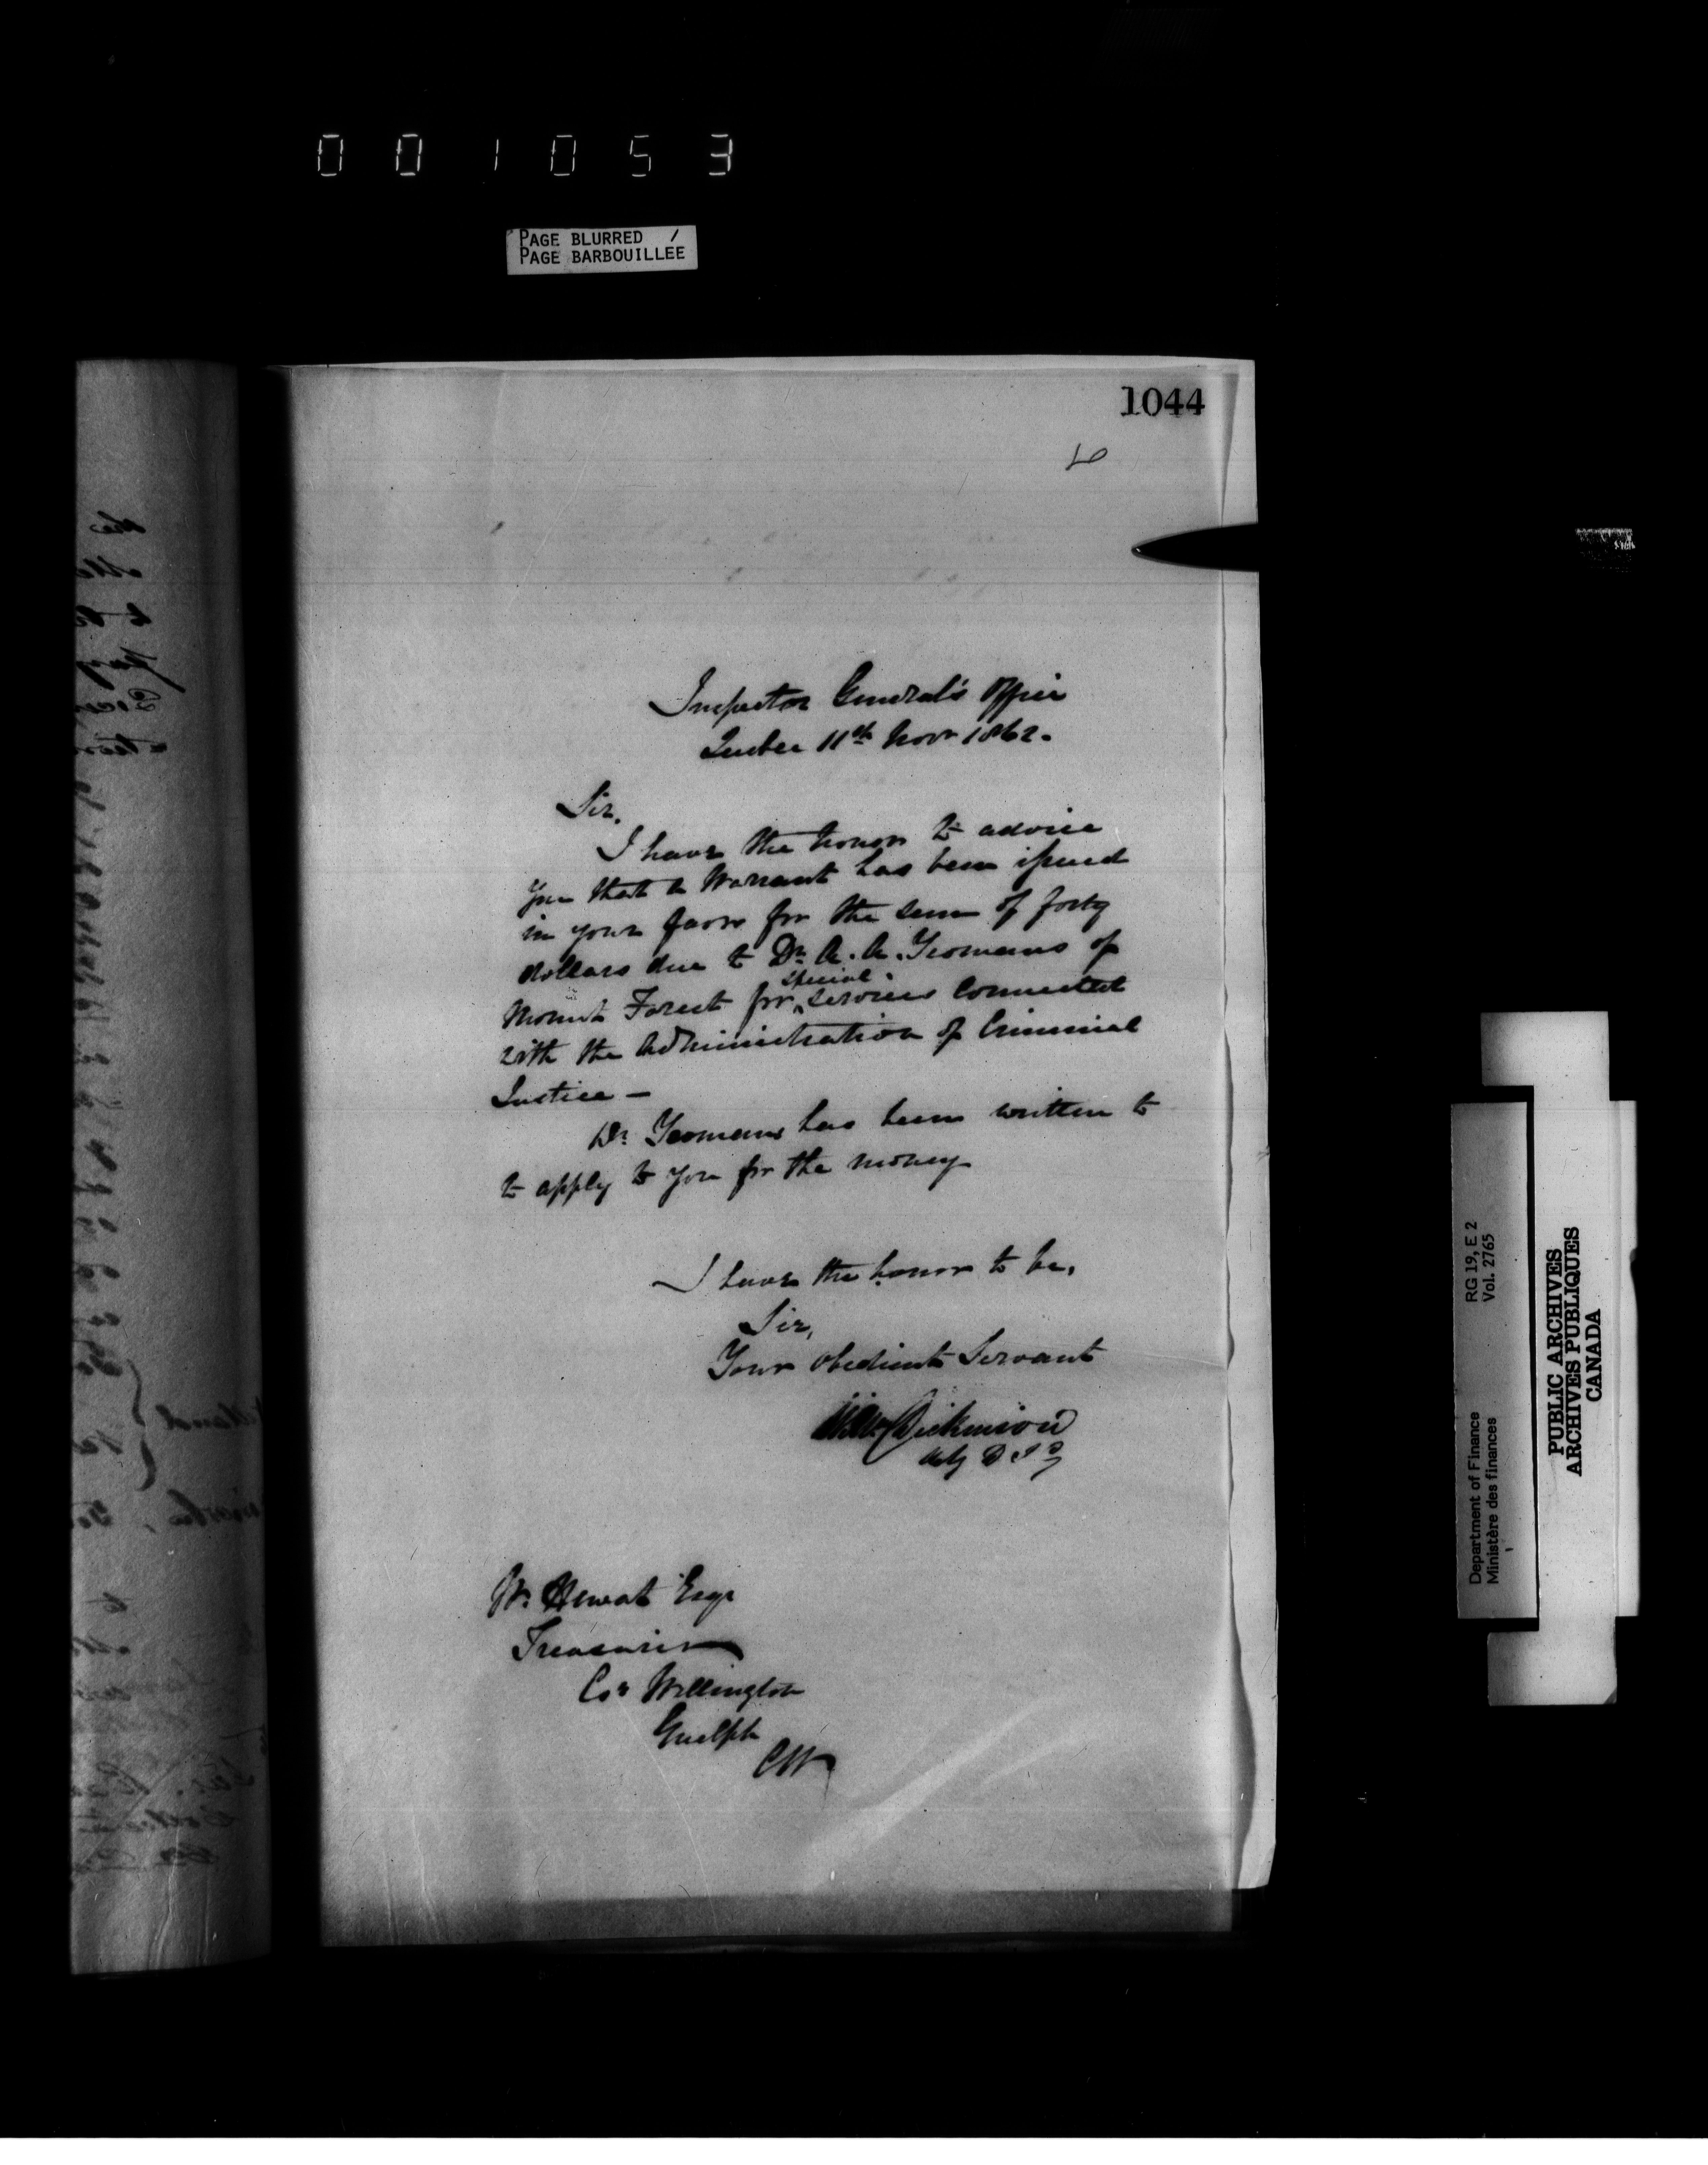 001053
PAGE BLURRED /
PAGE BARBOUILLEE
1044
Inspector General's Office
Quebec 11th Novr 1862.
Sir,
I have the honor to advise
you that a Warrant has been issued
in your favor for the sum of forty
dollars due to Dr. A. A. Yeomans of
Mount Forest for special services connected
with the Administration of Criminal
Justice —
Dr. Yeomans has been written to
to apply to you for the money
I have the honor to be,
Sir,
Your obedient Servant
Dickinson
W. Hewat Esqr
Treasurer
Coy Wellington
Guelph
CW
Department of Finance RG 19, E 2
Ministère des finances Vol. 2765
PUBLIC ARCHIVES
ARCHIVES PUBLIQUES
CANADA